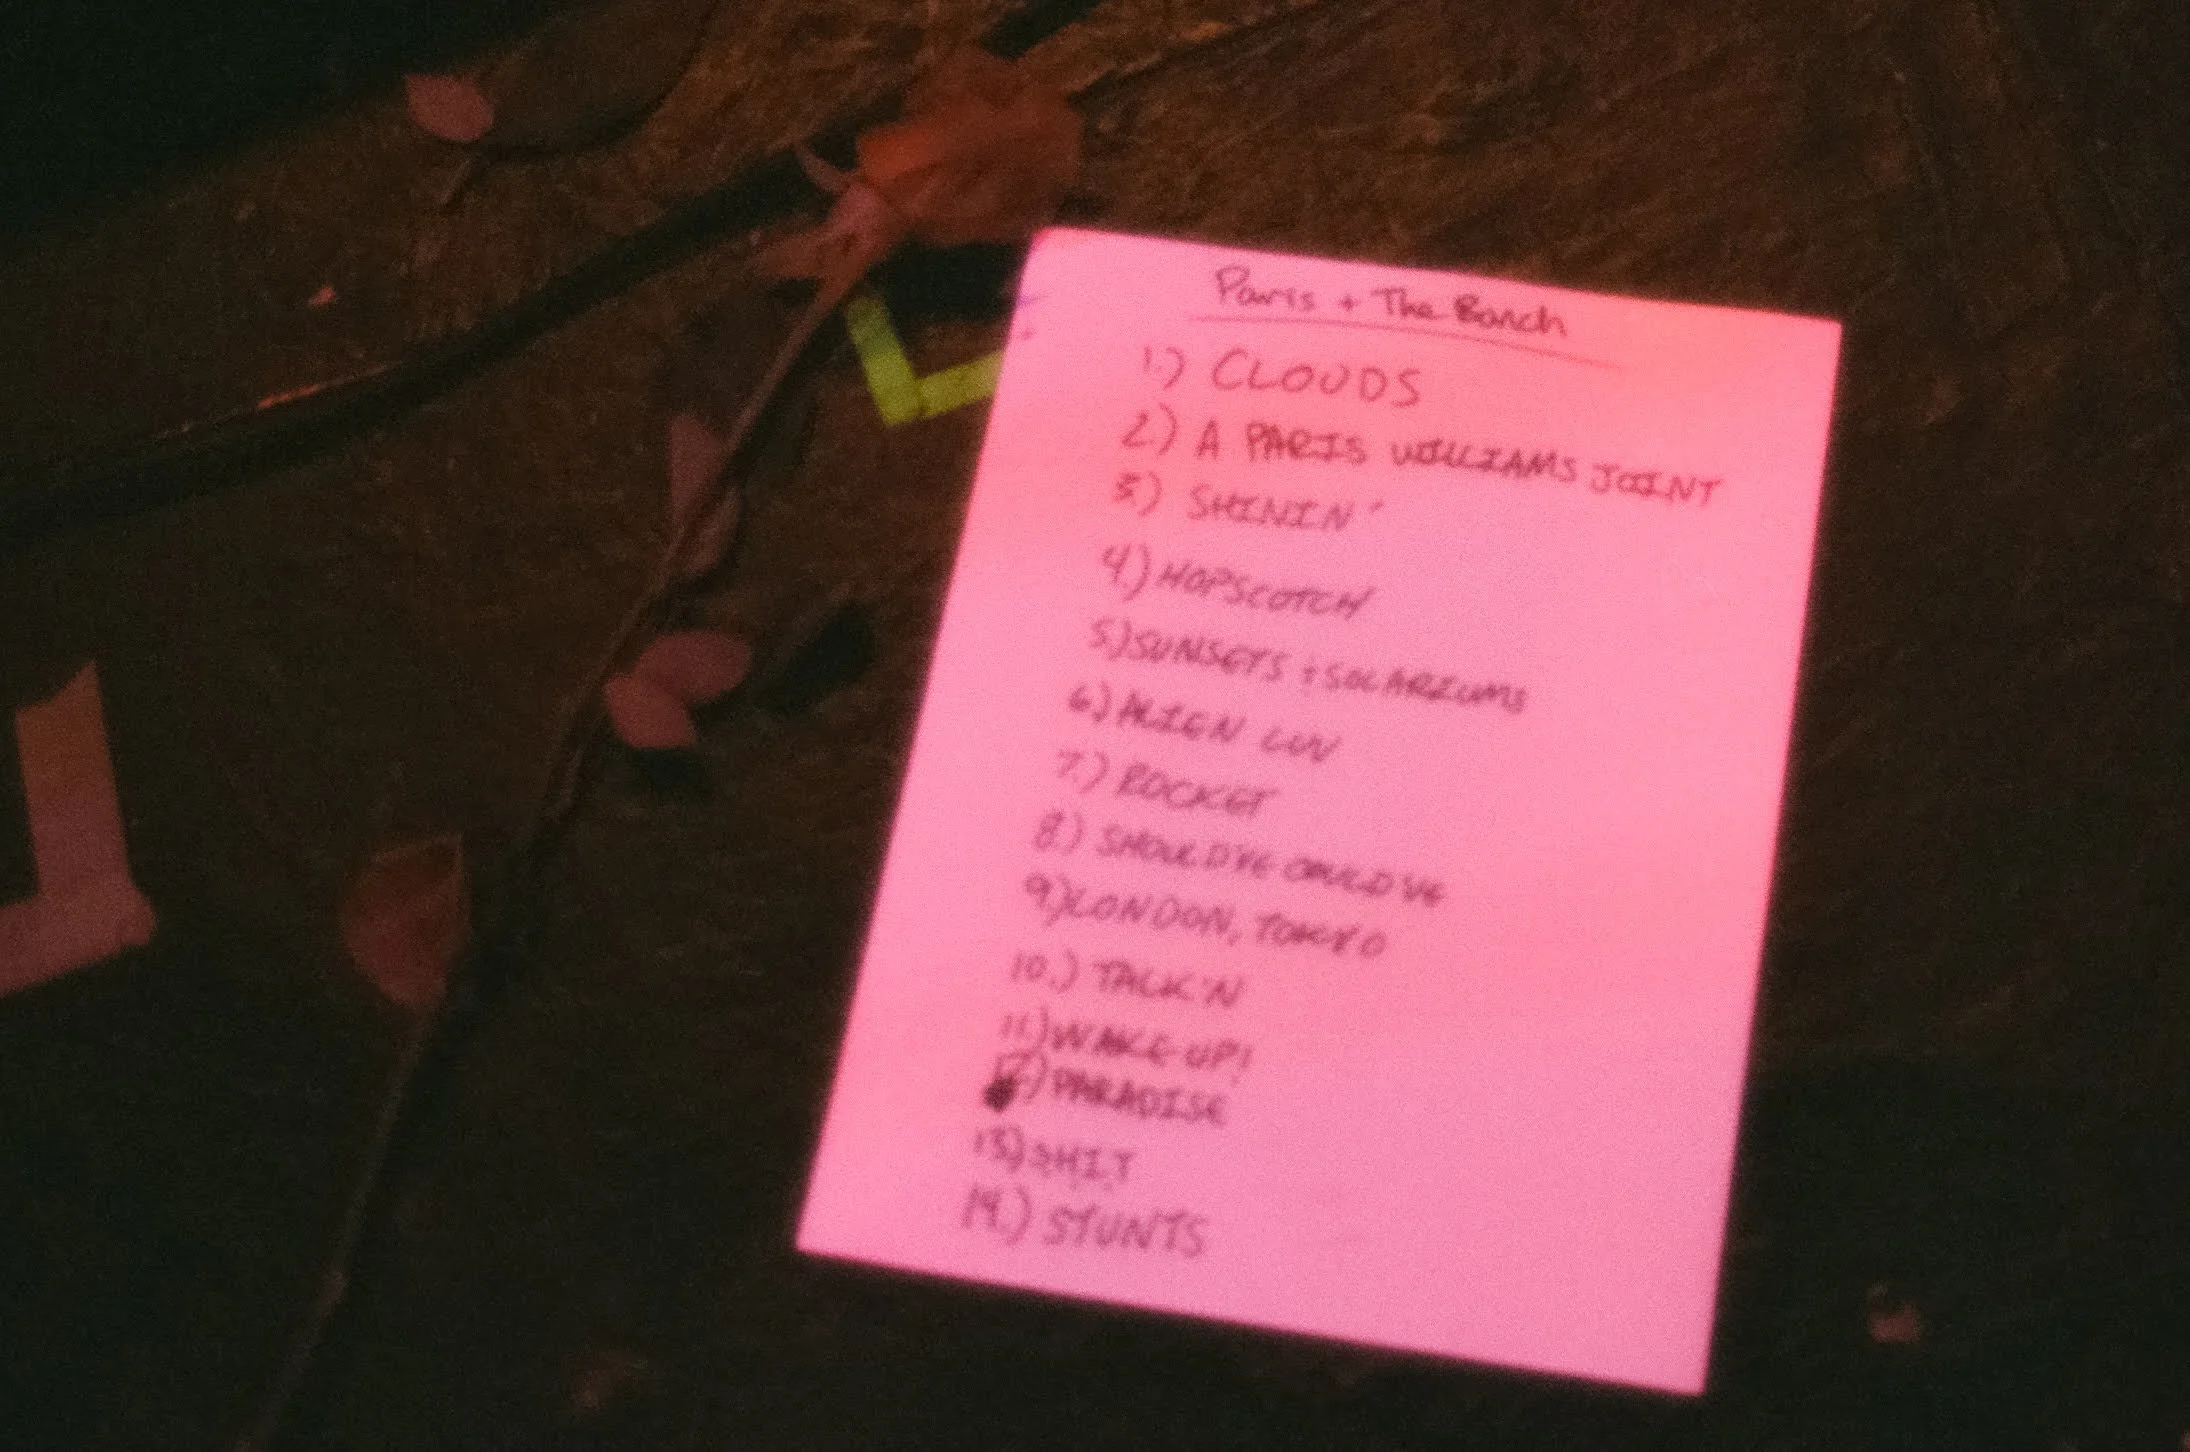 Paris + The Banch
1.) CLOUDS
2.) A PARIS WILLIAMS JOINT
3.) SHININ'
4.) HOPSCOTCH
5.) SUNSETS + SOLARIUMS
6.) ALIEN LUV
7.) ROCKET
8.) SHOULD'VE COULD'VE
9.) LONDON, TOKYO
10.) TALK'N
11.) WAKE-UP!
12.) PARADISE
13.) SHIT
14.) STUNTS